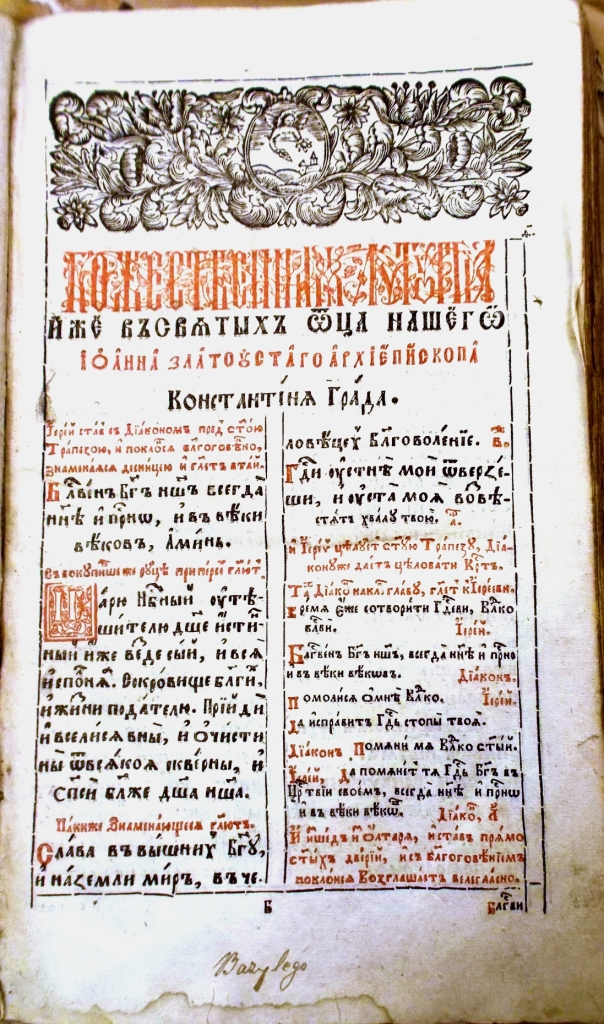 БОЖЕСТВЕННАѦ ЛІТꙊРГІА
И҆́ЖЕ ВЪСВѦТЫХЪ Ѿ҃ЦА НАШЕГѠ
ІѠА́ННА ЗЛАТОꙊСТАГО АРХІЕ҆ПИ́СКОПА
КОНСТАНТІ́НѦ ГРА́ДА.
І҆ере́й ставъ съ Діакономъ пред̾ ст҃ою
Трапезою, и҆ поклоⷩ҇сѧ благоговѣ́нно,
знаменаясѧ десницею и҆ гл҃етъ втай.
Бл҃ве́нъ Бг҃ъ нш҃ъ всегда
нн҃ѣ и҆ прⷭ҇нѡ, и҆ въ вѣ́ки
вѣ́ковъ, А҆ми́нь.
Въ вокупѣ же руцѣ при персе гл҃ют.
Царю Нбⷭ҇ный ᲂутѣ́-
шителю дш҃е и҆сти́н
ный и҆́же везде сый, и҆ всѧ
и҆споⷧ҇нѧѧ. Сокровище благи́х,
и҆ жи́зни подателю. Прїиди
и҆ вселисѧ в ны̀, и҆ ѻ҆чисти
ны̀ ѿ всѧ́коѧ скве́рны, и҆
сп҃си бл҃же дш҃а нш҃а.
Паки же Знаменающесѧ гл҃ютъ.
Слава въ вы́шних Бг҃у,
и҆ на земли ми́ръ, въ че-
ловѣ́цехъ Благоволе́ние. в҃.
Гд҃и ᲂустнѣ̀ мои̑ ѿве́рзе-
ши, и҆ ᲂуста моѧ̑ возвѣ-
стѧ́тъ хвалу твою. а҃.
И҆ І҆ере́й цѣлуе́т ст҃ую Трапезу, Діа-
кону же даетъ цѣловати Крⷭ҇тъ.
Таⷤ҇ Діако накл. главу, гл҃ет к І҆ере́еви.
Время е҆́же сотвори́ти Гдⷭ҇еви, Влⷣ҇ко
бл҃ви.
І҆ере́й.
Бл҃гве́нъ Бг҃ъ нш҃ъ, всегда нн҃ѣ и҆ прⷭ҇но
и҆ въ вѣ́ки вѣ́кѡвъ.
Діакон.
Помоли́сѧ ѡ҆ мнѣ̀ Влⷣ҇ко.
І҆ере́й.
Да и҆справитъ Гдⷭ҇ь стопы̀ твоѧ̀.
Діакон. Помѧни́ мѧ Влⷣ҇ко ст҃ый.
І҆ере́й, Да помѧне́т тѧ Гдⷭ҇ь Бг҃ъ въ
Црⷭ҇твїи свое́мъ, всегда нн҃ѣ и҆ прⷭ҇нѡ
и҆ въ вѣ́ки вѣ́кѡⷡ҇.
Діако,
И҆ и҆ше́д и҆з̾ ѻ҆лтарѧ̀, и҆ ставъ прѧ́мо
ст҃ых две́рїй, и҆ съ благоговѣ́нїем
поклонсѧ Возглашаетъ велегла́сно.
Б
Благ҃ви
Bazylego